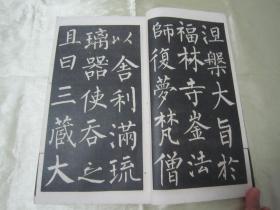 涅槃大旨於
福林寺崟法
師復夢梵僧
以舍利滿琉
璃器使吞之
且曰三藏大